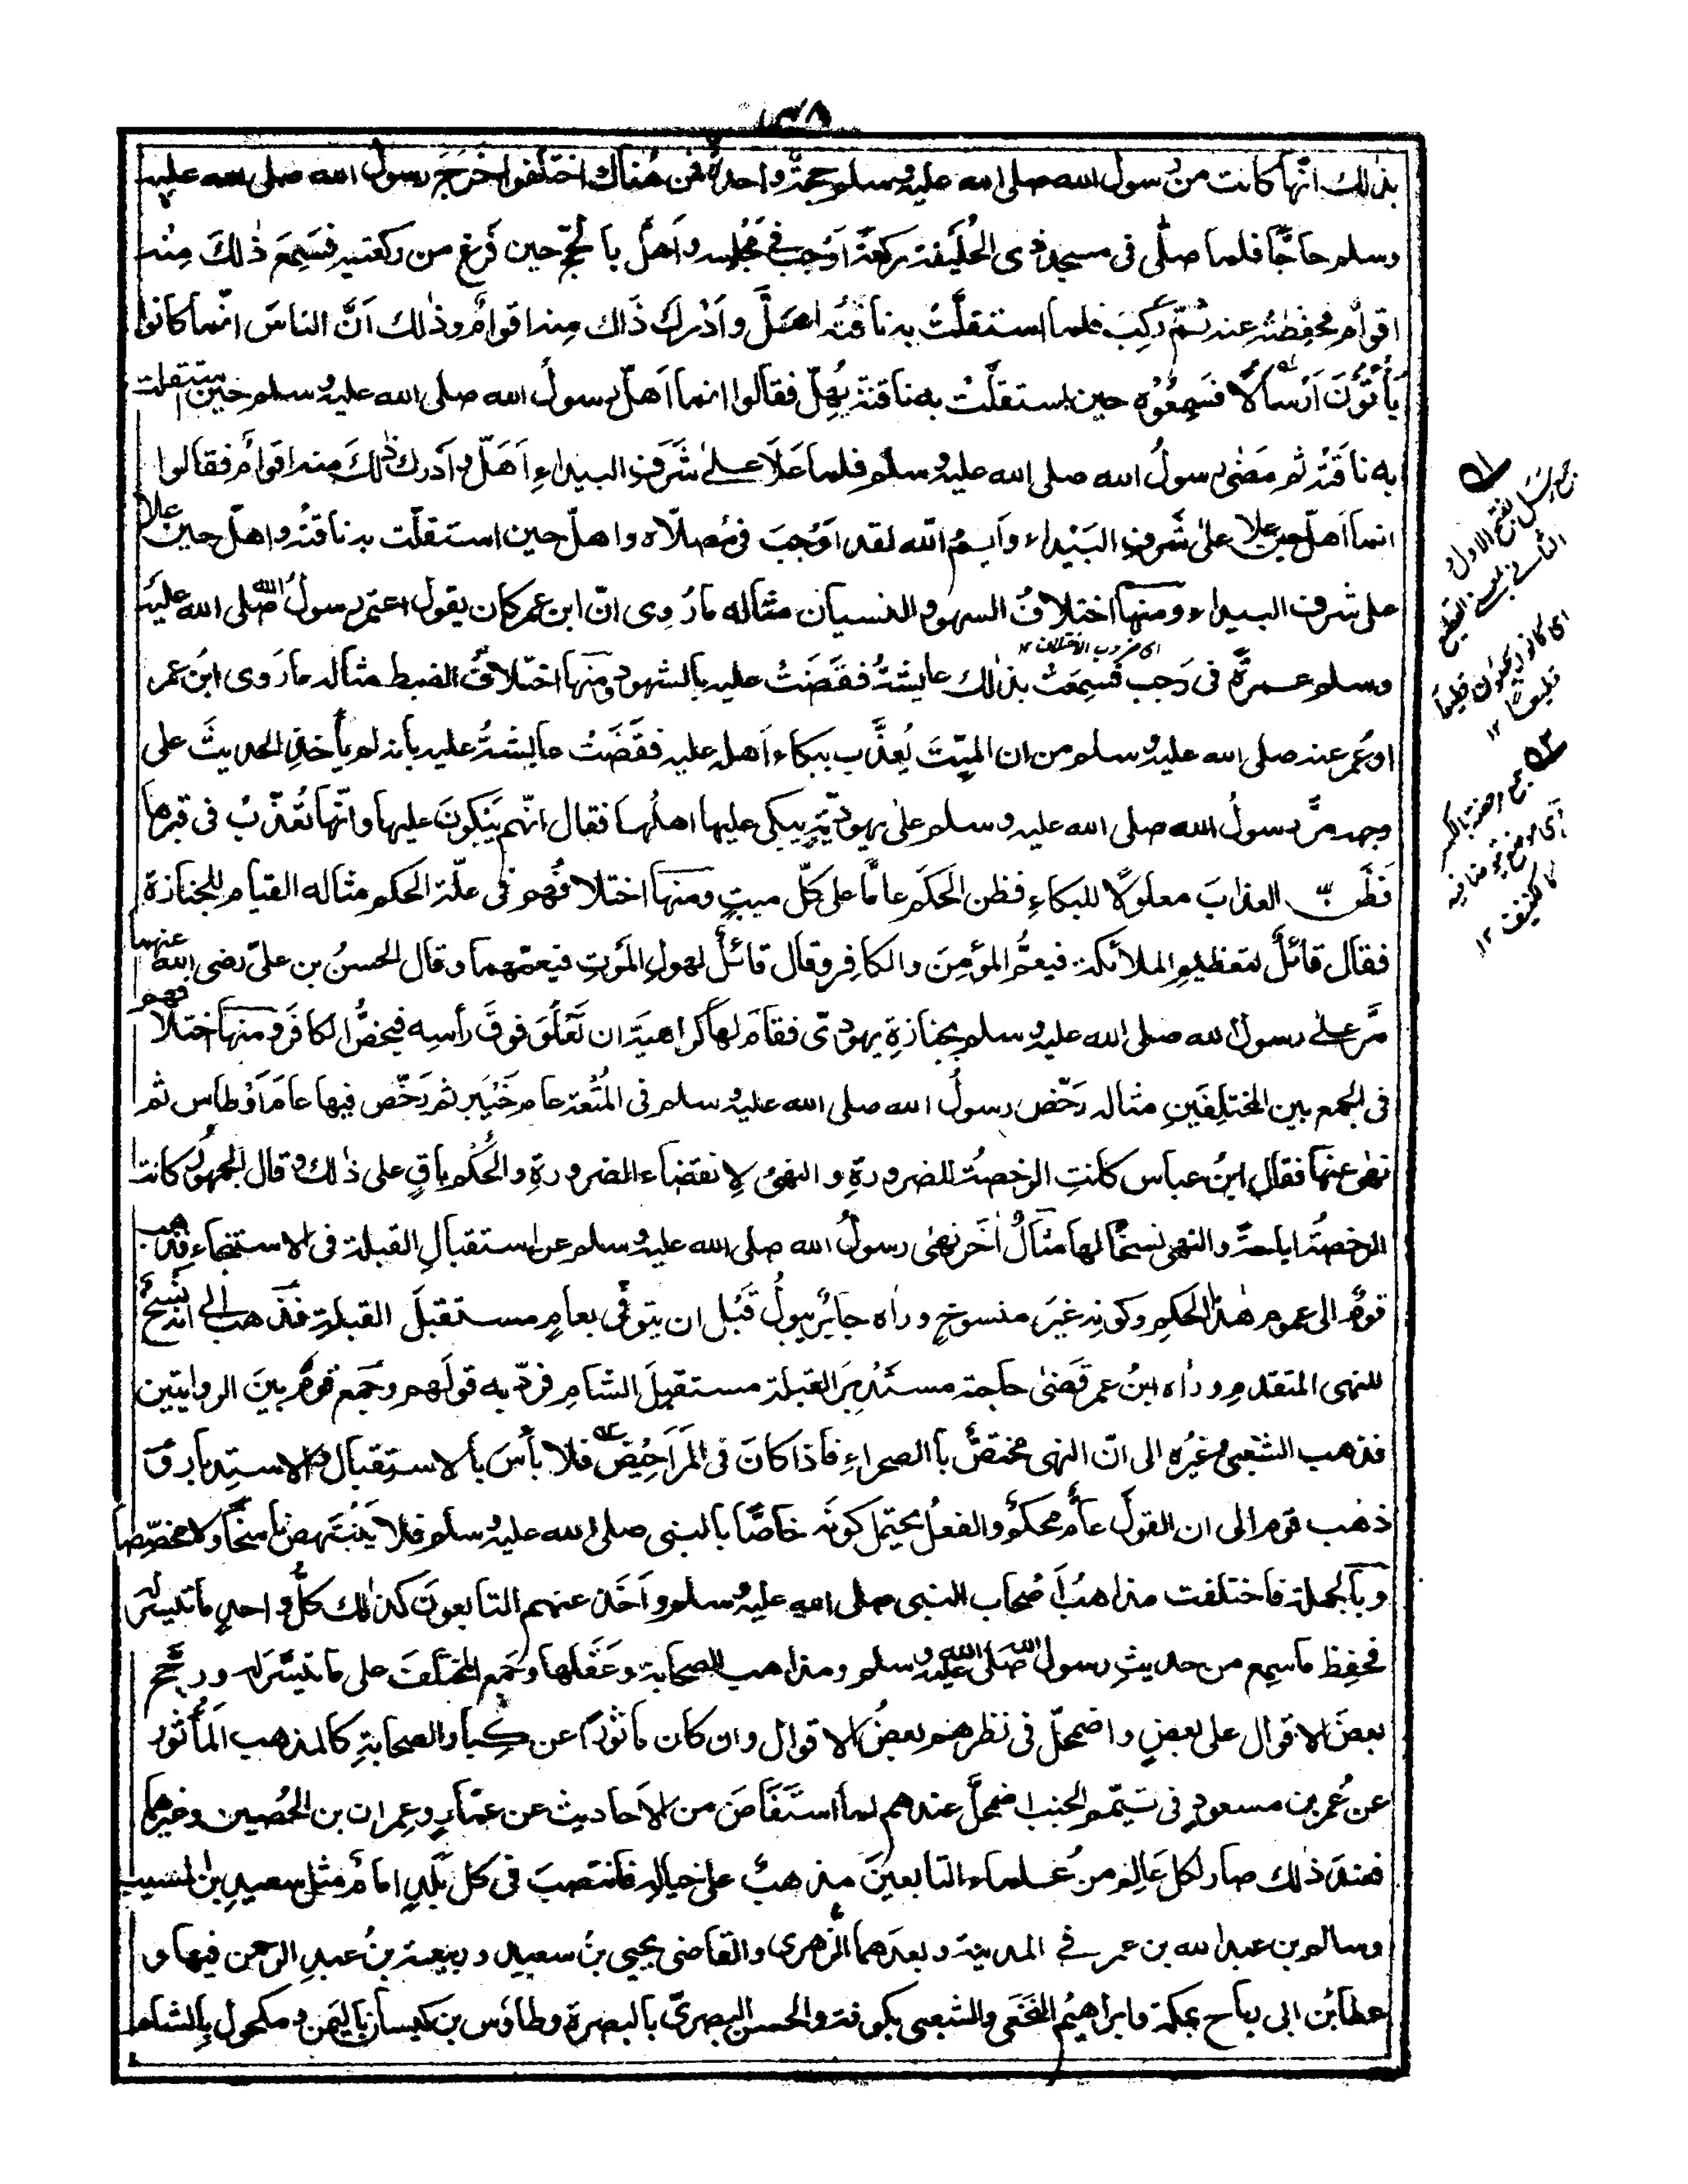 ١٤٨
بذلك انّها كانت من رسول الله صلى الله عليه وسلم حجةٌ واحدةٌ فمن هُناك اختلفوا خَرَجَ رسولُ الله صلى الله عليه
وسلم حاجًّا فلما صلّٰى فى مسجد ذى الحُلَيفة ركعةً اَوْجَبَ فى مَجْلِسه و اَهَلَّ بالحجّ حين فَرَغ من ركعتيه فسَمِعَ ذٰلكَ مِنْه
اقوامٌ فحفِظتُه عنه ثمّ رَكِبَ فلما استقلَّتْ به ناقتُه اَهَلَّ واَدْرَكَ ذَاك مِنه اقوامٌ وذٰلك اَنَّ الناسَ انّما كانوا
يَأْتُوْنَ اَرْسَالًا فسَمِعُوْه حين استقلَّتْ به ناقتُه يُهِلّ فقالوا انما اَهَلّ رسولُ الله صلى الله عليه وسلم حين استقلت
به ناقَتُه ثم مَضٰى رسولُ الله صلى الله عليه وسلم فلما عَلَا علىٰ شَرَفِ البيداءِ اَهَلّ و اَدرك ذٰلكَ منه اقوامٌ فقالوا
انما اَهلّ حين علا علىٰ شَرَفِ البَيْداء وَاَيمُ الله لقد اَوْجَبَ فى مُصلّاه واهلّ حين استقلّت به ناقتُه واهلّ حين علا
على شرف البيداء ومنها اختلافُ السهو والنسيان مثاله مارُوِى انّ ابن عمر كان يقول اعتمر رسولُ الله صلى الله عليه
اى ضروب الاختلاف ١٢
وسلم عمرةً فى رَجب فسَمِعَتْ بذٰلك عايشةُ فقَضَتْ عليه بالسهو ومنها اختلافُ الضبط مثاله مارَوى ابنُ عمر
اوعُمر عنه صلى الله عليه وسلم من ان الميّتَ يُعذَّب ببكاء اَهله عليه فقَضَتْ عايشةُ عليه بانه لم يأخذِ الحديثَ على
وجهه مرَّ رسولُ الله صلى الله عليه وسلم على يهوديّةٍ يبكى عليها اهلُها فقال انّهم يَبْكونَ عليها وانّها تُعَذّبُ فى قبرها
فَظَنّ العذابَ معلولًا للبكاءِ فظن الحكمَ عامًّا على كلّ ميتٍ ومنها اختلافُهم فى علّة الحكم مثاله القيام للجنازة
فقال قائلٌ لتعظيمِ الملائكة فيعمُّ المؤمِنَ والكافِر وقال قائلٌ لهولِ المَوتِ فيعمّهما وقال الحسنُ بن علىّ رضى الله عنهما
مُرَّ علىٰ رسول الله صلى الله عليه وسلم بجنازةِ يهودىّ فقامَ لها كراهيَةَ ان تَعْلُوَ فوقَ رأسِه فيخصُّ الكافرَ ومنها اختلافهم
فى الجمع بين المختلِفَينِ مثاله رَخّص رسولُ الله صلى الله عليه وسلم فى المُتْعة عام خَيْبَر ثم رَخّص فيها عامَ اَوْطاس ثم
نهٰى عنها فقال ابنُ عباس كانتِ الرخصةُ للضرورةِ والنهىُ لِانقضاء الضرورةِ والحُكْم باقٍ على ذٰلك وقال الجمهُور كانت
الرخصةُ اباحةً والنهى نسخًا لها مثالٌ اٰخر نهٰى رسولُ الله صلى الله عليه وسلم عن استقبالِ القبلة فى الاستنجاءِ فذهب
قومٌ الى عموم هٰذا الحكمِ وكونِه غيرَ منسوخٍ وراٰه جابرٌ يبولُ قَبْل ان يتوفّٰى بعامٍ مستقبلَ القبلةِ فذهب الى انه نسخٌ
للنهى المتقدمِ وراٰه ابنُ عمر قَضٰى حاجة مستَدْبِرَ القبلة مستقبِلَ الشام فردّ به قولَهم وجَمَع قومٌ بينَ الروايتين
فذهب الشعبى وغيرُه الى انّ النهى مختصٌّ بالصحراءِ فاذا كانَ فى المَرَاحِيْضِ فلا بأسَ بالاستِقبال والاستِدبار و
ذهب قوم الى ان القولَ عامٌّ محكمٌ والفعلُ يحتمل كونَه خاصًّا بالنبى صلى الله عليه وسلم فلا يَنْتَهِضُ ناسخًا ولا مخصّصًا
وبالجملة فاختلفت مذاهبُ اَصحاب النبى صلى الله عليه وسلم واَخَذَ عنهم التابعونَ كذٰلك كلُّ واحدٍ ماتيسّرله
فحفِظ ماسمِع من حديثِ رسول الله صلى الله عليه وسلم ومذاهب الصحابة وعَقَلها وجَمع المختلفَ على ماتيسّرَله ورجّح
بعضَ الاقوال على بعضٍ واضمحلّ فى نظرهم بعضُ الاقوال وان كان مأثورًا عن كِبار الصحابةِ كالمذهب المَأْثور
عن عُمر بن مسعودٍ فى تيمّم الجنب اضمحلَّ عندهم لما استَفَاضَ من الاَحاديث عن عمّارٍ وعِمران بن الحُصين وغيرهما
فعندَ ذٰلك صار لكل عَالِم من عُلماء التابعينَ مذهبٌ على حياله فانتصبَ فى كل بَلَدٍ امامٌ مثل سعيدِ بن المسيب
وسالم بن عبد الله بن عمر فى المدينة وبعدَهما الزهرى والقاضى يحيى بنُ سعيد وربيعة بنُ عبدِ الرحمن فيها و
عطابُن ابى رباح بمكة وابراهيمُ النخَعَى والشعبى بكوفة والحسن البصرىّ بالبصرة وطاؤس بن كيسان باليَمن ومكحول بالشام
له
جمع رسل بفتح الاول و
الثانى بمعنى القطيع
اى كانوا يجيئون قطيعا
قطيعا ١٢
جمع مرحضة بالكسر
اى موضع
كالكنيف ١٢